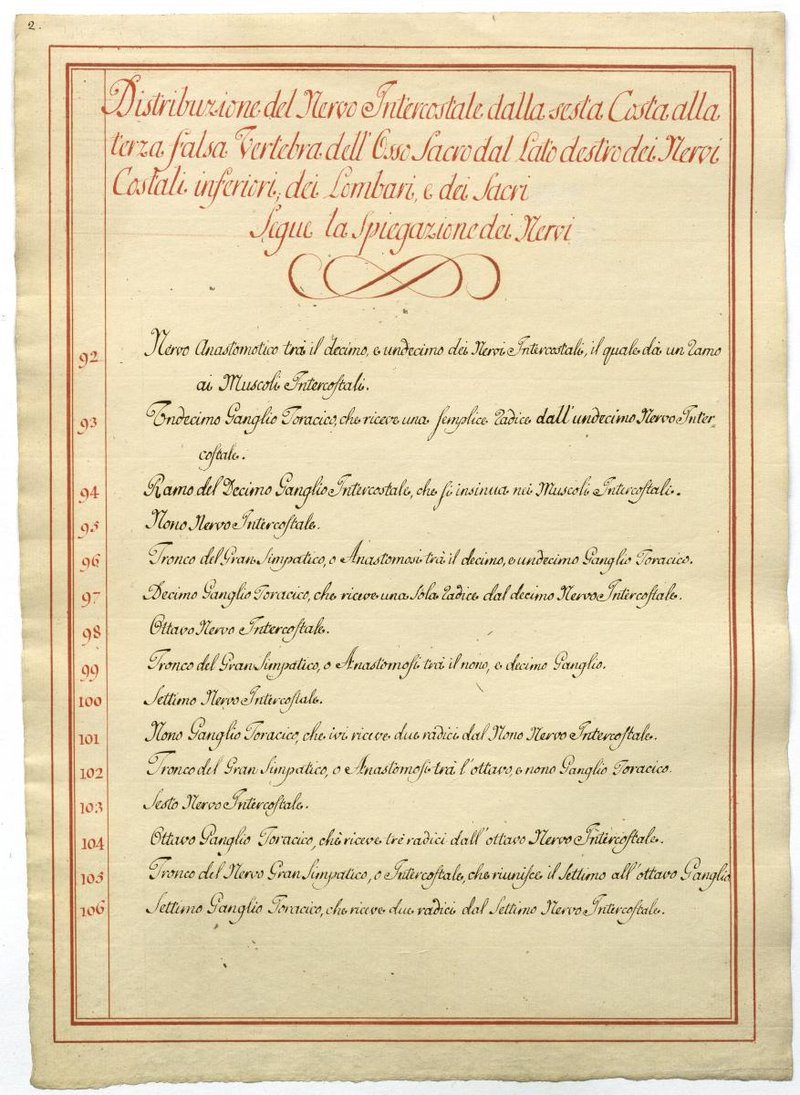 2.
Distribuzione del Nervo Intercostale dalla sesta Costa alla
terza falsa Vertebra dell' Osso Sacro dal Lato destro dei Nervi
Costali inferiori, dei Lombari, e dei Sacri
Segue la Spiegazione dei Nervi
92 Nervo Anastomotico trà il decimo, e undecimo dei Nervi Intercostali, il quale dà un Ramo
ai Muscoli Intercostali.
93 Undecimo Ganglio Toracico, che riceve una semplice Radice dall' undecimo Nervo Inter-
costale.
94 Ramo del Decimo Ganglio Intercostale, che si insinua nei Muscoli Intercostali.
95 Nono Nervo Intercostale.
96 Tronco del Gran Simpatico, o Anastomosi trà il decimo, e undecimo Ganglio Toracico.
97 Decimo Ganglio Toracico, che riceve una sola Radice dal decimo Nervo Intercostale.
98 Ottavo Nervo Intercostale.
99 Tronco del Gran Simpatico, o Anastomosi trà il nono, e decimo Ganglio.
100 Settimo Nervo Intercostale.
101 Nono Ganglio Toracico, che ivi riceve due radici dal Nono Nervo Intercostale.
102 Tronco del Gran Simpatico, o Anastomosi trà l'ottavo, e nono Ganglio Toracico.
103 Sesto Nervo Intercostale.
104 Ottavo Ganglio Toracico, che riceve trè radici dall' ottavo Nervo Intercostale.
105 Tronco del Nervo Gran Simpatico, o Intercostale, che riunisce il Settimo all' ottavo Ganglio
106 Settimo Ganglio Toracico, che riceve due radici dal Settimo Nervo Intercostale.